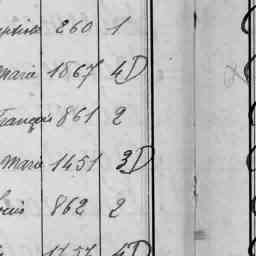 260 1
Marie 1867 4D
François 861 2
Marie 1451 3D
Louis 862 2
4D